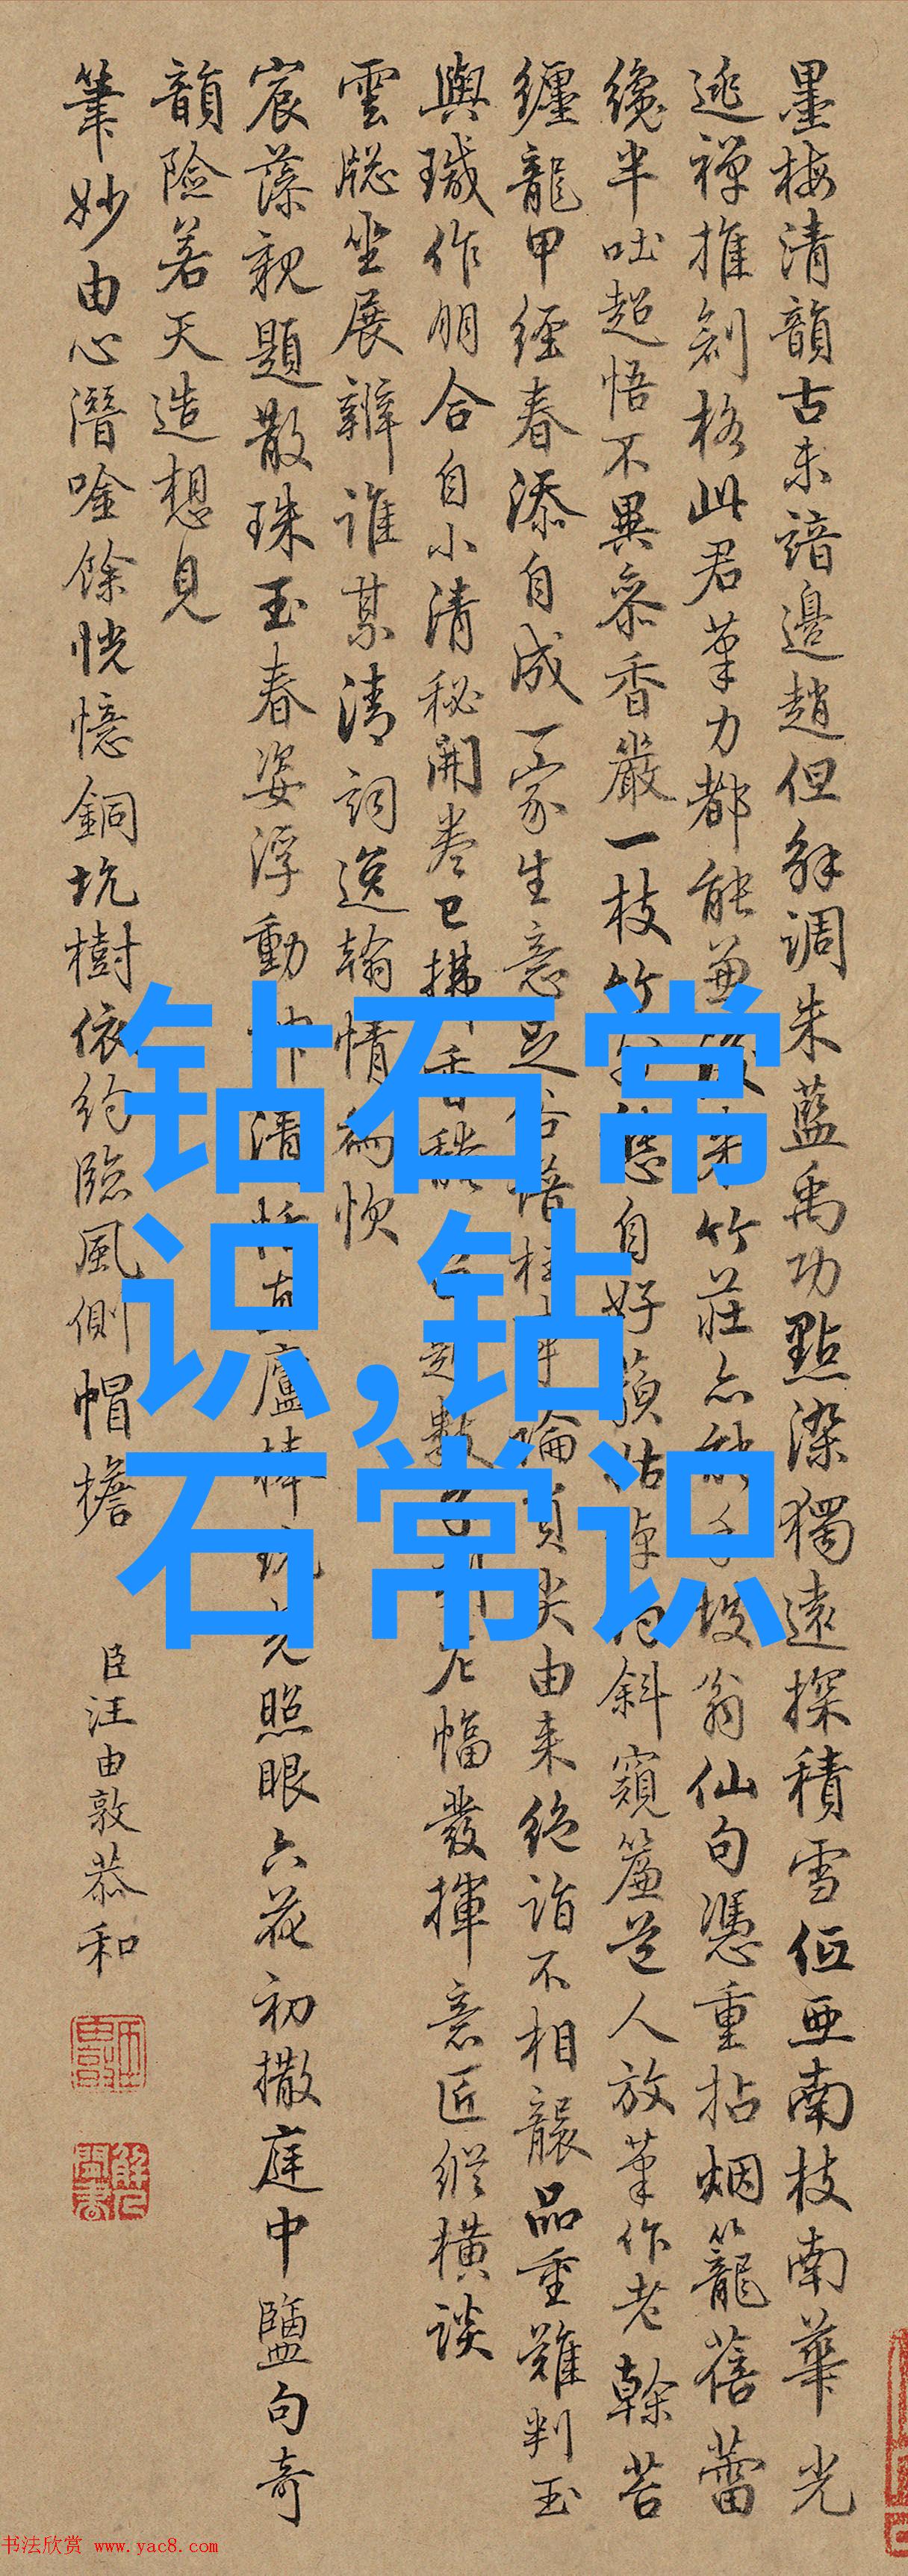 墨梅清韻古未諳邊趙但解調朱藍禹功點染獨遠探積雪伍亜南枝南華光
逃禪推剏格此君筆力都能兼 竹莊亦 翁仙句憑重拈烟籠蓓蕾
纔半吐超悟不異參香嚴一枝竹 自好 斜窺簾道人放筆作老幹苔
纏龍甲經春添自成一家生意足 論 尖由来絶詣不相襲品重難判玉
與瑊作朋合自小清秘開卷已拂香 數 幅發揮意匠縱横談
雲牕坐展辨誰某清詞逸翰情為恢
宸藻親題散珠玉春姿浮動 清 直廬捧玩光照眼六花初撒庭中鹽句奇
韻險若天造想見
筆妙由心潛唫餘恍憶銅坑樹依約臨風側帽檐
臣汪由敦恭和
钻石常
识,钻
石常识
书法欣赏 www.yac8.com